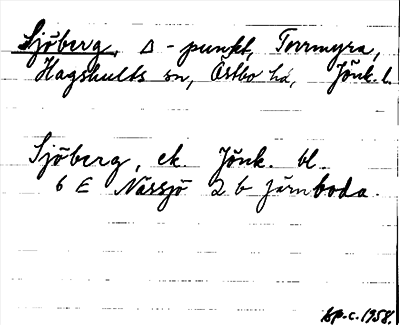 Sjöberg, Δ - punkt, Torrmyra,
Hagshults sn, Östbo hd, Jönk. l.
Sjöberg, ek. Jönk. bl.
6 E Nässjö 2 b Järnboda.
1958.